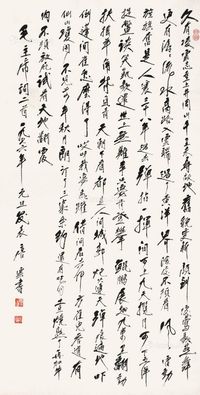 久有凌云志重上井冈山千里来寻故地旧貌变新颜到处莺歌燕舞
更有潺潺流水高路入云端过了黄洋界险处不须看风雷动
旌旗奋是人寰三十八年过去弹指一挥间可上九天揽月可下五洋
捉鳖谈笑凯歌还世上无难事只要肯登攀鲲鹏展翅九万里翻动
扶摇羊角背负青天朝下看都是人间城郭炮火连天弹痕遍地吓
倒蓬间雀怎么得了哎呀我要飞跃借问君去何方雀儿答道有
仙山琼阁不见前年秋月朗订了三家条约还有吃的土豆烧熟了再加牛
肉不须放屁试看天地翻覆
毛主席词二首一九七六年元旦发表 唐 书